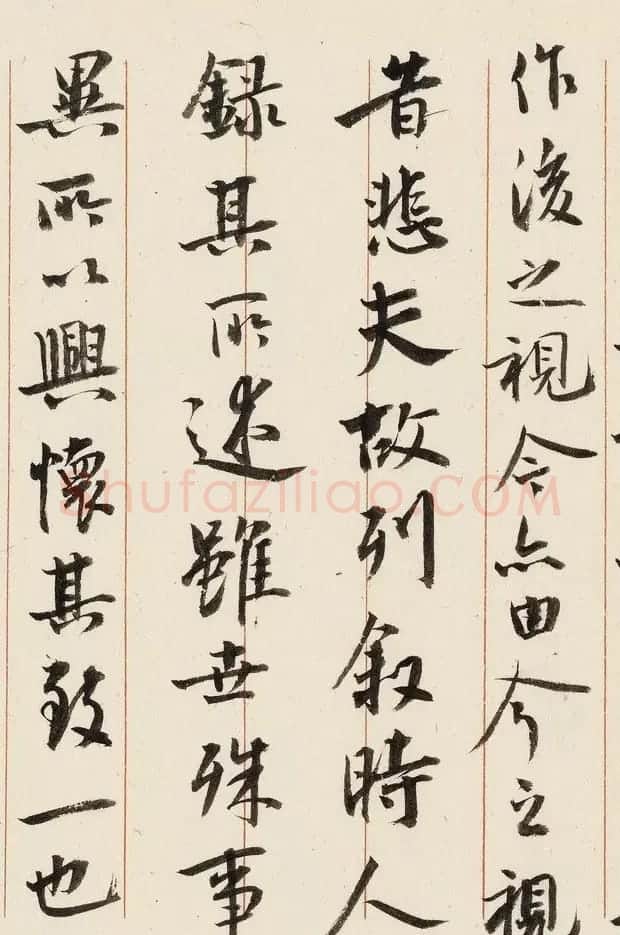 作後之視今亦由今之視
昔悲夫故列叙時人
録其所述雖世殊事
異所以興懷其致一也
shufaziliao.COM